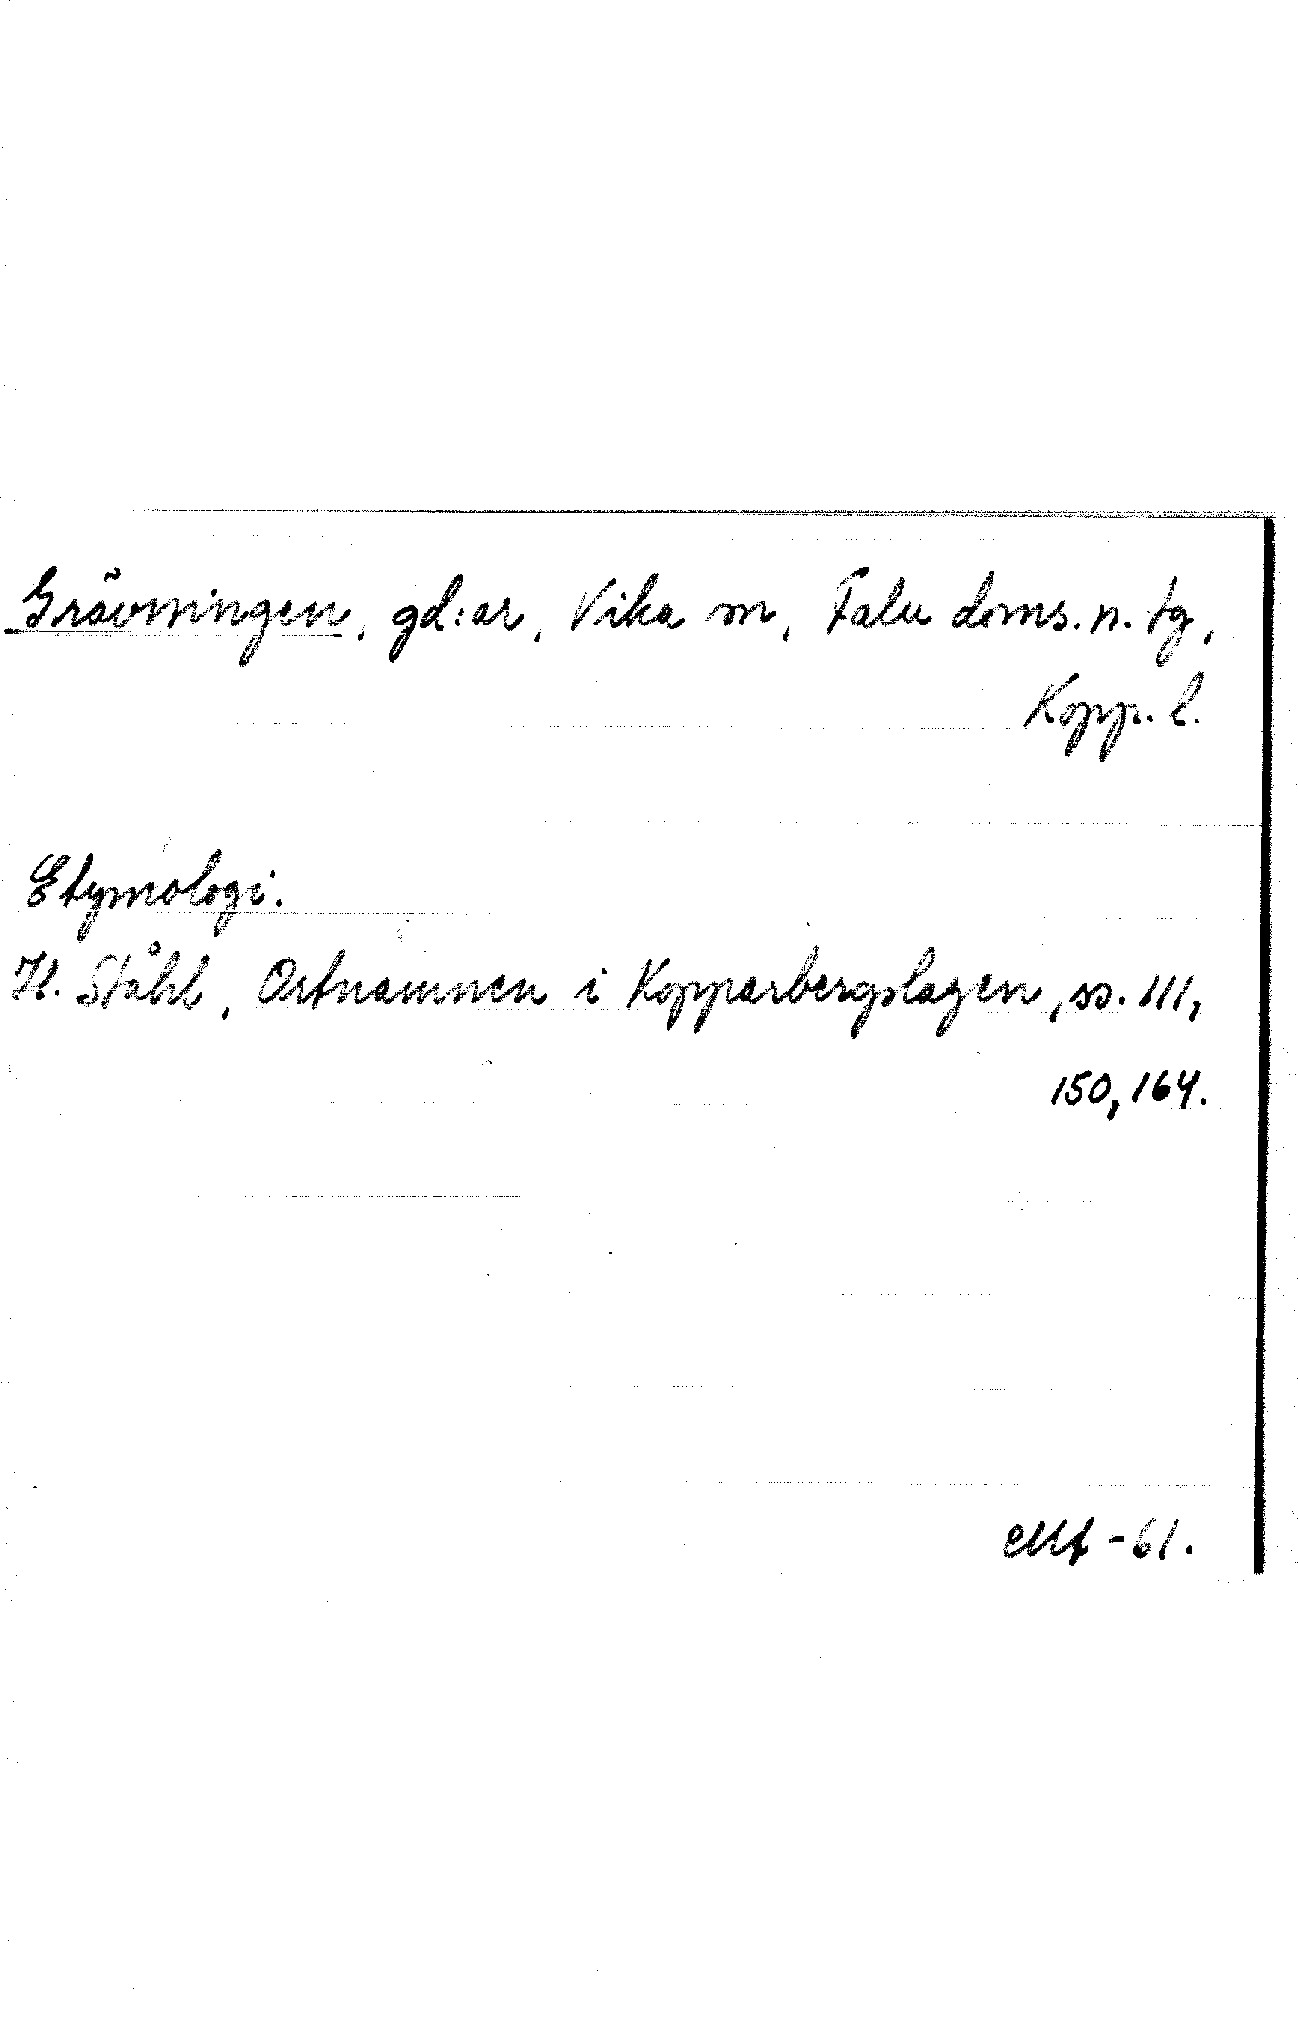 Grävningen, gd:ar, Vika sn, Falu doms. n. tg,
Kopp. l.
Etymologi.
H. Ståhl, Ortnamnen i Kopparbergslagen, ss. 111,
150, 164.
-61.